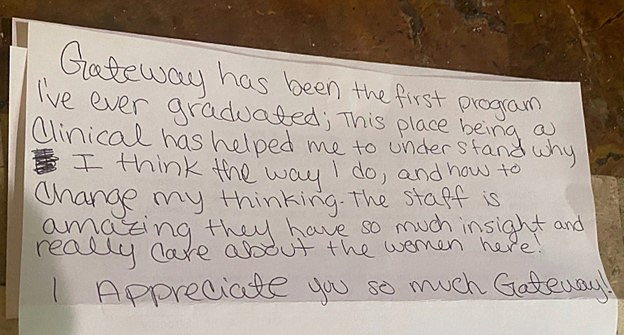 Gateway has been the first program
I've ever graduated; This place being a
Clinical has helped me to understand why
I think the way I do, and how to
change my thinking. The staff is
amazing they have so much insight and
really care about the women here!
I Appreciate you so much Gateway!